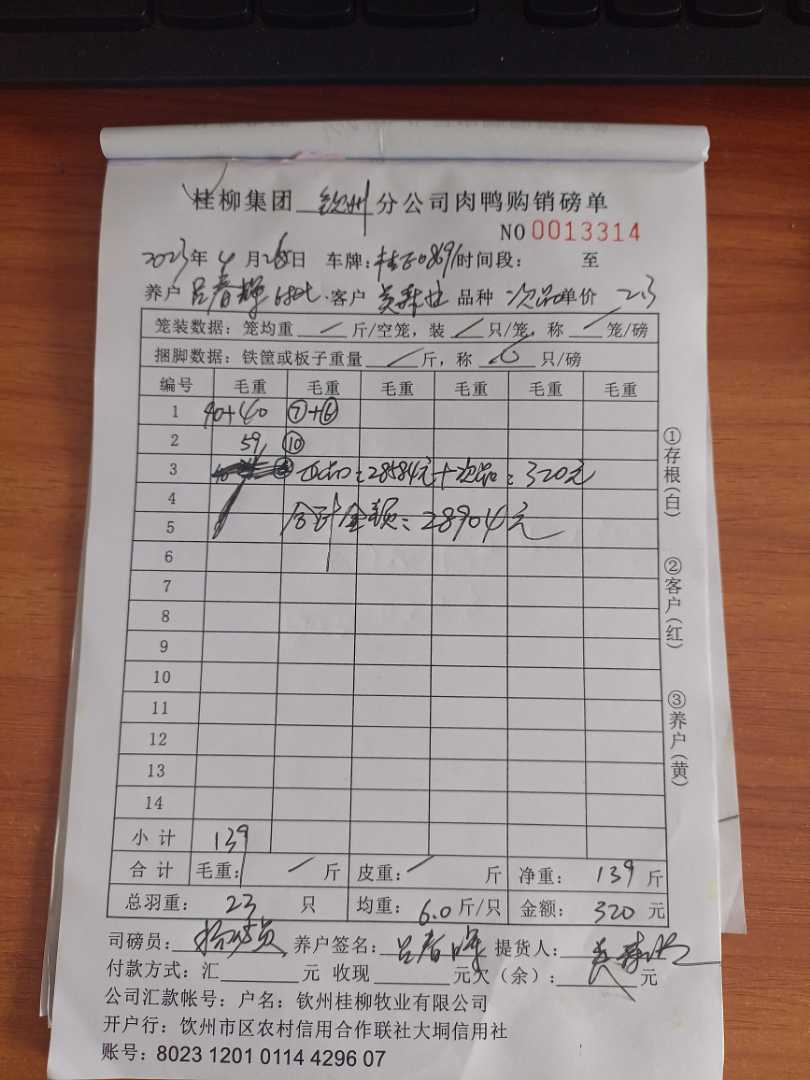 桂柳集团 钦州 分公司肉鸭购销磅单
NO 0013314
2023年 4月28日 车牌: 时间段: 至
养户 吕春辉 客户 品种 次品 单价 2.3
笼装数据: 笼均重 / 斤/空笼, 装 / 只/笼, 称 / 笼/磅
捆脚数据: 铁筐或板子重量 / 斤, 称 只/磅
编号 毛重 毛重 毛重 毛重 毛重 毛重
1 40+40 ⑦+⑥
2 59 ⑩
3 正品:28584元+次品:320元
4
5 合计金额:28904元
6
7
8
9
10
11
12
13
14
小计 139
合计 毛重: / 斤 皮重: / 斤 净重: 139 斤
总羽重: 23 只 均重: 6.0 斤/只 金额: 320 元
①存根(白)
②客户(红)
③养户(黄)
司磅员: 养户签名: 吕春辉 提货人:
付款方式: 汇 元 收现 元欠(余): 元
公司汇款帐号: 户名: 钦州桂柳牧业有限公司
开户行: 钦州市区农村信用合作联社大垌信用社
账号: 8023 1201 0114 4296 07